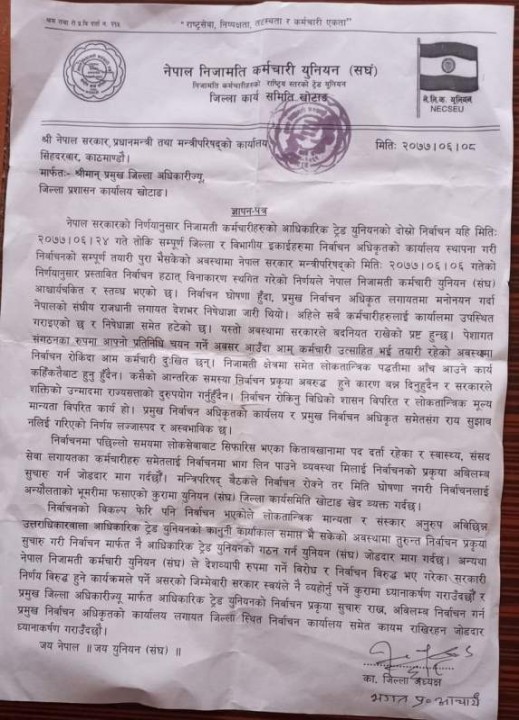 श्रम तथा रो.प्र.वि दर्ता नं. ११६ "राष्ट्रसेवा, निष्पक्षता, तटस्थता र कर्मचारी एकता"
नेपाल निजामति कर्मचारी युनियन (सघं)
निजामति कर्मचारीहरुको राष्ट्रिय स्तरको ट्रेड युनियन
जिल्ला कार्य समिति खोटाङ
ने.नि.क. युनियन
NECSEU
श्री नेपाल सरकार,प्रधानमन्त्री तथा मन्त्रीपरिषद्को कार्यालय
मितिः २०७७।०६।०८
सिंहदरबार, काठमाण्डौ।
मार्फतः- श्रीमान् प्रमुख जिल्ला अधिकारीज्यू,
जिल्ला प्रशासन कार्यालय खोटाङ।
ज्ञापन-पत्र
नेपाल सरकारको निर्णयानुसार निजामती कर्मचारीहरुको आधिकारिक ट्रेड युनियनको दोस्रो निर्वाचन यहि मितिः
२०७७।०६।२४ गते तोकि सम्पूर्ण जिल्ला र बिभागीय इकाईहरुमा निर्वाचन अधिकृतको कार्यालय स्थापना गरी
निर्वाचनको सम्पूर्ण तयारी पुरा भैसकेको अवस्थामा नेपाल सरकार मन्त्रीपरिषद्को मितिः २०७७।०६।०६ गतेको
निर्णयानुसार प्रस्तावित निर्वाचन हठात् बिनाकारण स्थगित गरेको निर्णयले नेपाल निजामती कर्मचारी युनियन (संघ)
आश्चार्यचकित र स्तब्ध भएको छ। निर्वाचन घोषणा हुँदा, प्रमुख निर्वाचन अधिकृत लगायतमा मनोनयन गर्दा
नेपालको संघीय राजधानी लगायत देशभर निषेधाज्ञा जारी थियो। अहिले सबै कर्मचारीहरुलाई कार्यालमा उपस्थित
गराइएको छ र निषेधाज्ञा समेत हटेको छ। यस्तो अवस्थामा सरकारले बदनियत राखेको प्रष्ट हुन्छ। पेशागत
संगठनका रुपमा आफ्नो प्रतिनिधि चयन गर्ने अबसर आउँदा आम् कर्मचारी उत्साहित भई तयारी रहेको अवस्थामा
निर्वाचन रोकिदा आम कर्मचारी दुःखित छन्। निजामती क्षेत्रमा समेत लोकतान्त्रिक पद्धतीमा आँच आउने कार्य
कहिँकतैबाट हुनु हुँदैन। कसैको आन्तरिक समस्या निर्वाचन प्रकृया अबरुद्ध हुने कारण बन्न दिनुहुँदैन र सरकारले
शक्तिको उन्मादमा राज्यसत्ताको दुरुपयोग गर्नुहुँदैन। निर्वाचन रोकिनु बिधिको शासन बिपरित र लोकतान्त्रिक मूल्य
मान्यता बिपरित कार्य हो। प्रमुख निर्वाचन अधिकृतको कार्यालय र प्रमुख निर्वाचन अधिकृत समेतसंग राय सुझाव
नलिई गरिएको निर्णय लज्जास्पद र अस्वभाबिक छ।
निर्वाचनमा पछिल्लो समयमा लोकसेवाबाट सिफारिस भएका किताबखानामा पद दर्ता रहेका र स्वास्थ्य, संसद
सेवा लगायतका कर्मचारीहरु समेतलाई निर्वाचनमा भाग लिन पाउने व्यवस्था मिलाई निर्वाचनको प्रकृया अबिलम्ब
सुचारु गर्न जोडदार माग गर्दछौं। मन्त्रिपरिषद् बैठकले निर्वाचन रोक्ने तर मिति घोषणा नगरी निर्वाचनलाई
अन्यौलताको भूमरीमा फसाएको कुरामा युनियन (संघ) जिल्ला कार्यसमिति खोटाङ खेद व्यक्त गर्दछ।
निर्वाचनको बिकल्प फेरि पनि निर्वाचन भएकोले लोकतान्त्रिक मान्यता र संस्कार अनुरुप अबिछिन्न
उत्तराधिकारवाला आधिकारिक ट्रेड युनियनको कानुनी कार्यकाल समाप्त भै सकेको अवस्थामा तुरुन्त निर्वाचन प्रकृया
सुचारु गरी निर्वाचन मार्फत नै आधिकारिक ट्रेड युनियनको गठन गर्न युनियन (संघ) जोडदार माग गर्दछ। अन्यथा
नेपाल निजामती कर्मचारी युनियन (संघ) ले देशव्यापी रुपमा गर्ने बिरोध र निर्वाचन बिरुद्ध भए गरेका सरकारी
निर्णय बिरुद्ध हुने कार्यक्रमले पर्ने असरको जिम्मेवारी सरकार स्वयंले नै व्यहोर्नु पर्ने कुरामा ध्यानाकर्षण गराउँदछौं र
प्रमुख जिल्ला अधिकारीज्यू मार्फत आधिकारिक ट्रेड युनियनको निर्वाचन प्रकृया सुचारु राख्न, अबिलम्ब निर्वाचन गर्न
प्रमुख निर्वाचन अधिकृतको कार्यालय लगायत जिल्ला स्थित निर्वाचन कार्यालय समेत कायम राखिरहन जोडदार
ध्यानाकर्षण गराउँदछौं।
जय नेपाल ॥ जय युनियन (संघ) ॥
का. जिल्ला अध्यक्ष
भगत प्र० आचार्य